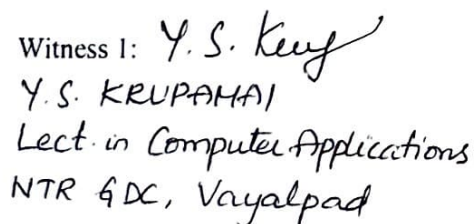 Witness 1: Y. S. Kruf
Y. S. KRUPAMAI
Lect. in Computer Applications
NTR GDC, Vayalpad